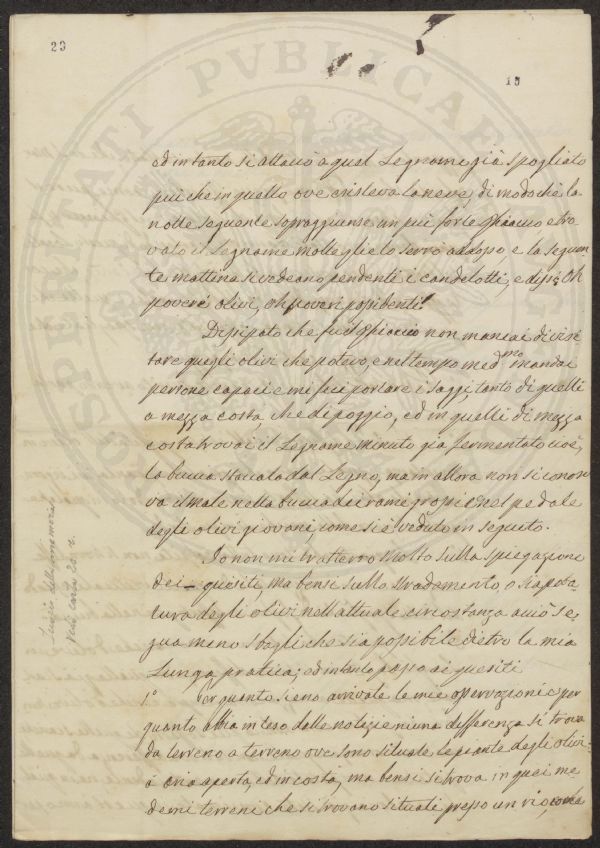 23
15
PROSPERITATI PVBLICAE AVG
ed in tanto si attaccò a quel Legname già spogliato
più che in quello ove esisteva la neve, di modo chè la
notte seguente sopraggiunse un più forte Ghiaccio e tro
vato il Legname molle glie lo serrò addosso, e la seguen
te mattina si vedeano pendenti i candelotti, e dissi Oh
poveri olivi, oh poveri possidenti!
Dissipato che fù il Ghiaccio non mancai di visi
tare quegli olivi che potevo, e nel tempo med.mo mandai
persone capaci e mi feci portare i saggi tanto di quelli
a mezza costa, che di poggio, ed in quelli di mezza
costa trovai il Legname minuto già fermentato cioè,
la buccia staccata dal Legno, ma in allora non si conosce
va il male nella buccia dei rami grossi e nel pedale
degli olivi giovani, come si è veduto in seguito.
Io non mi tratterrò molto sulla spiegazione
dei quesiti, ma bensi sullo stradamento, o sia pota
tura degli olivi nell'attuale circostanza acciò se
gua meno sbagli che sia possibile dietro la mia
Lunga pratica; ed intanto passo ai quesiti
1.° Per quanto sieno arrivate le mie osservazioni e per
quanto abbia inteso dalle notizie niuna differenza si trova
da terreno a terreno ove sono situate le piante degli olivi
a aria aperta, ed in costa, ma bensi si trova in quei me
demi terreni che si trovano situati presso un rio,
Seguito delle memorie
Vedi carta 20 r.